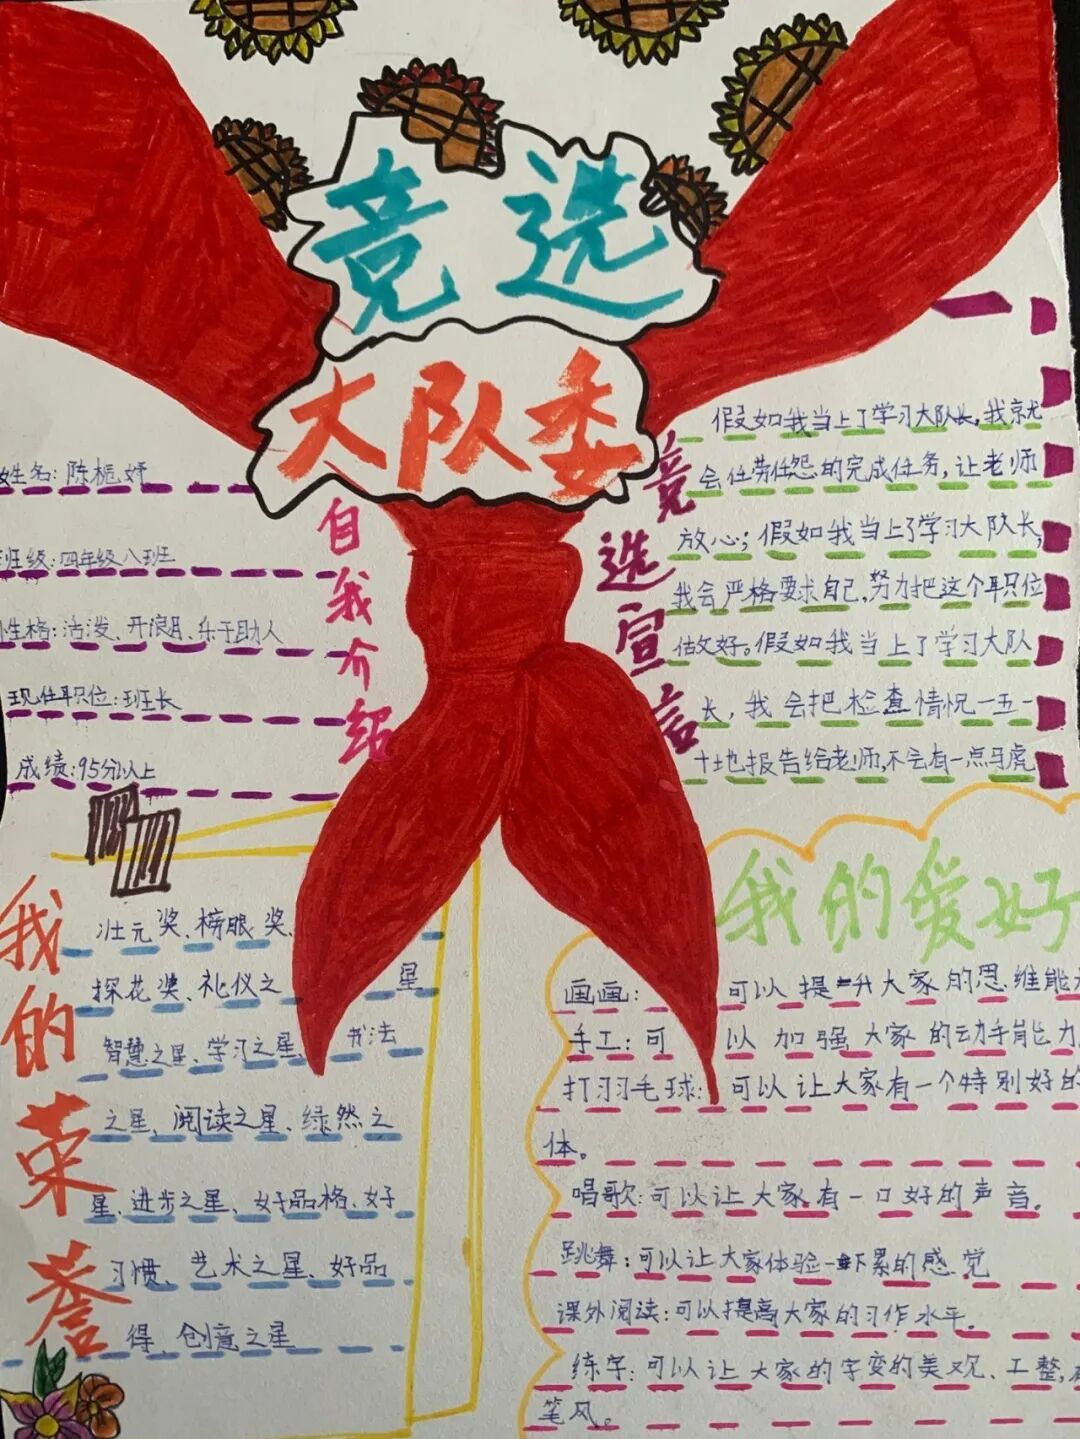 竞选
大队委
自我介绍
姓名：陈栀妤
班级：四年级八班
性格：活泼、开浪月、乐于助人
现任职位：班长
成绩：95分以上
竞选宣言
假如我当上了学习大队长，我
会任劳任怨的完成任务，让老师
放心；假如我当上了学习大队长，
我会严格要求自己，努力把这个职位
做好。假如我当上了学习大队
长，我会把检查情况一五一
十地报告给老师，不会有一点马虎
我的荣誉
状元奖、榜眼奖、
探花奖、礼仪之星
智慧之星、学习之星、书法
之星、阅读之星、绿然之
星、进步之星、好品格、好
习惯、艺术之星、好品
得、创意之星
我的爱好
画画：可以提升大家的思维能
手工：可以加强大家的动手能力
打羽毛球：可以让大家有一个特别好的
体。
唱歌：可以让大家有一口好的声音。
跳舞：可以让大家体验一下累的感觉
课外阅读：可以提高大家的习作水平。
练字：可以让大家的字变的美观、工整，
笔风。